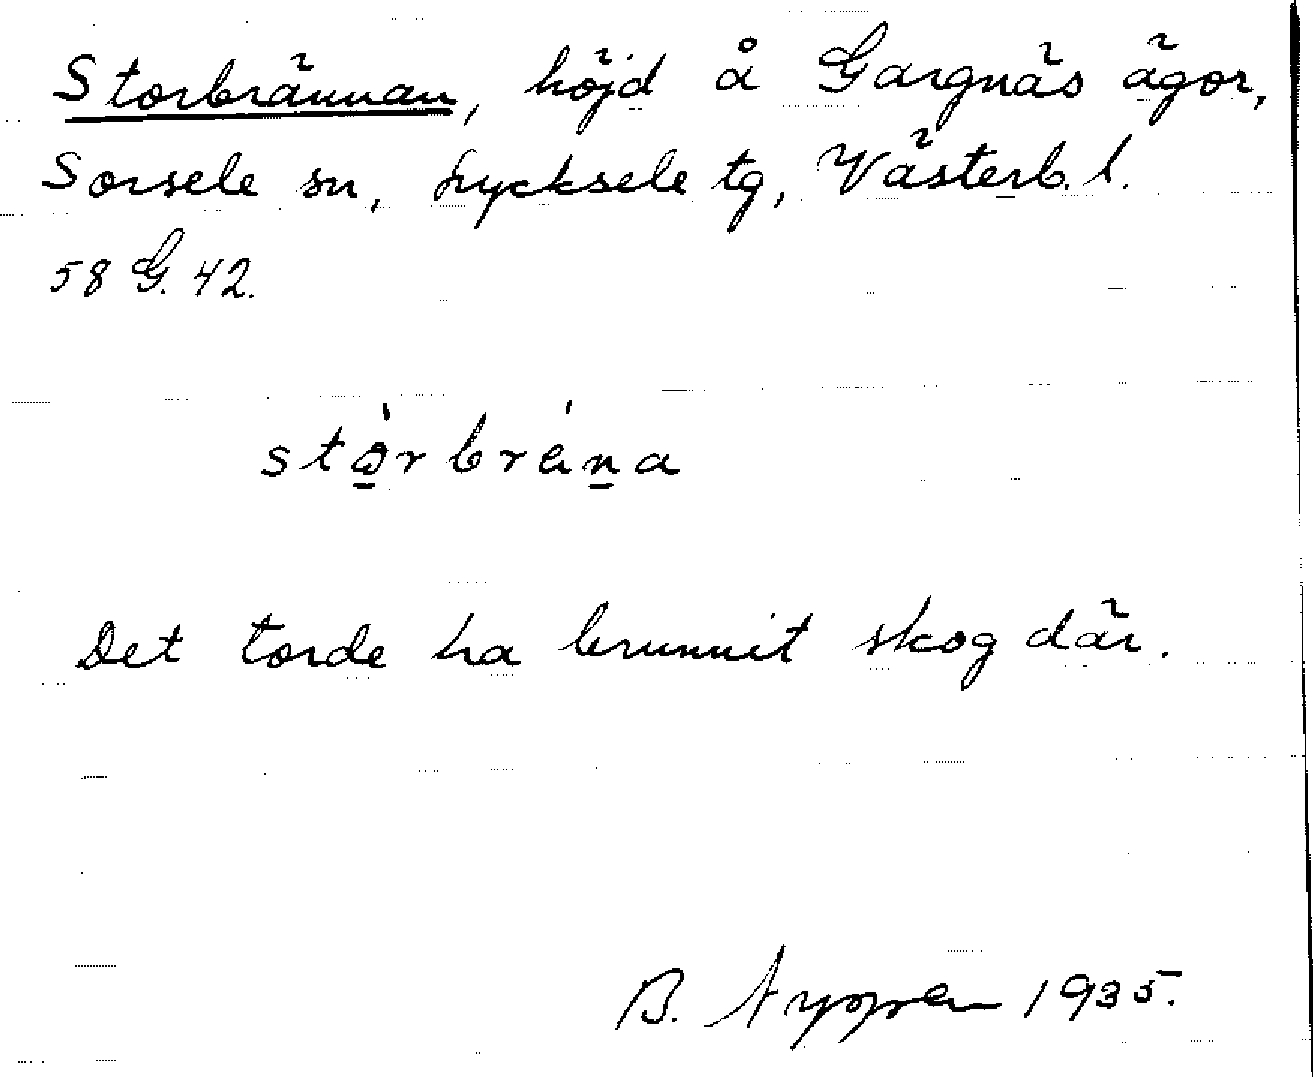 Storbrännan, höjd å Gargnäs ägor,
Sorsele sn, Lycksele tg, Västerb. l.
58 G. 42.
stǫ̀rbräṉa
Det torde ha brunnit skog där.
B. 1935.